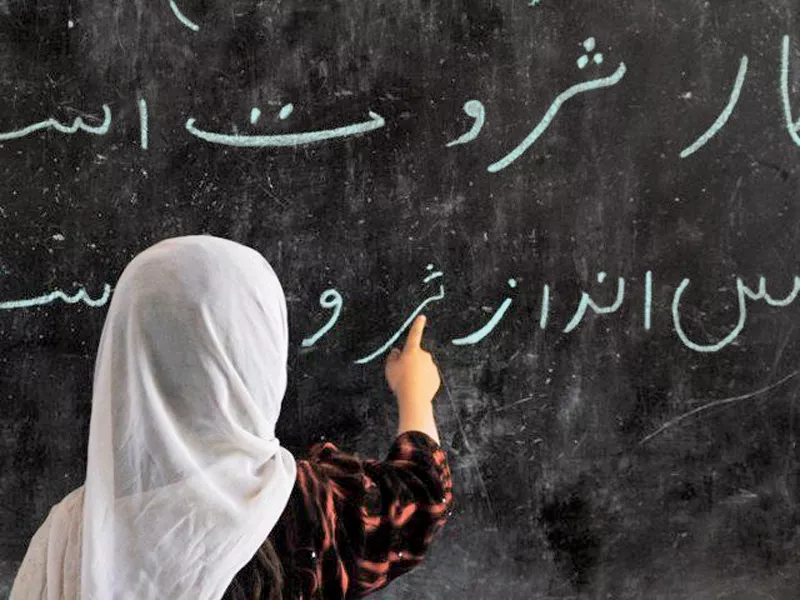 ار ثروت اسـ
ـس انداز ثرو